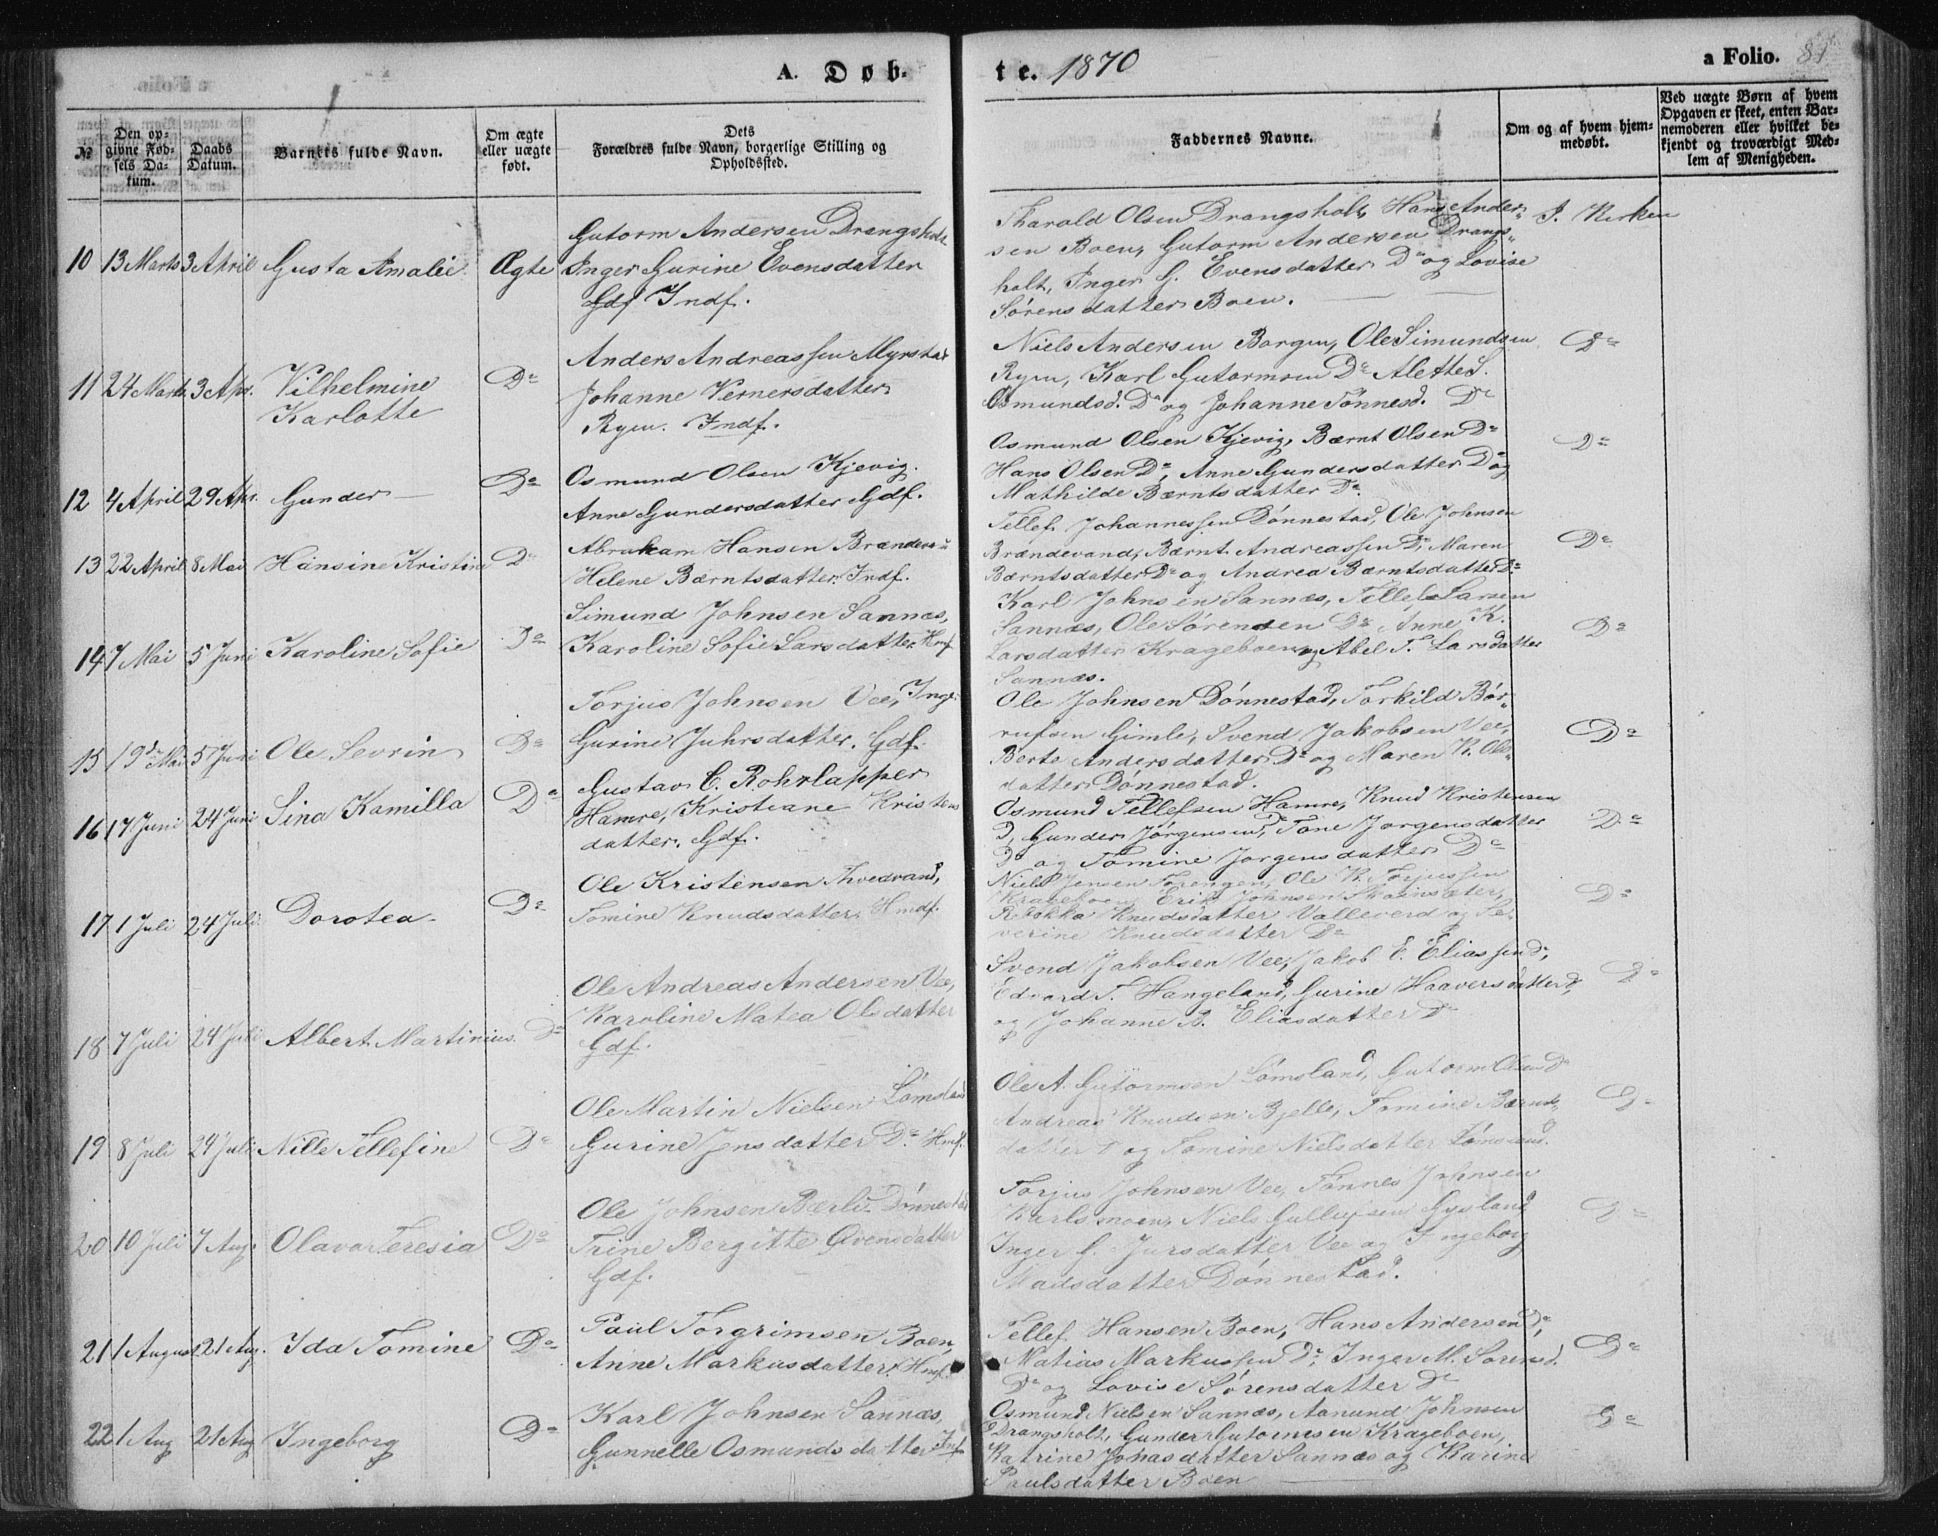 A. Døb-
te. 1870
a Folio. 81
№
Den opgivne Fødsels Datum.
Daabs Datum.
Barnets fulde Navn.
Om ægte eller uægte født.
Dets Forældres fulde Navn, borgerlige Stilling og Opholdssted.
Faddernes Navne.
Om og af hvem hjemmedøbt.
Ved uægte Børn af hvem Opgaven er skeet, enten Barnemoderen eller hvilket bekjendt og troværdigt Medlem af Menigheden.
10 13 Marts 3 April Gusta Amalie Ægte
Gutorm Andersen Drangsholt
Inger Gurine Evensdatter
Gdf Indf.
Tharald Olsen Drangsholt, Hans Ander-
sen Boen, Gutorm Andersen Drangs-
holt, Inger G. Evensdatter Do og Lovise
Sørensdatter Boen.
I. Kirken
11 24 Marts 3 Apr. Vilhelmine
Karlotte
Do
Anders Andreassen Myrstad
Johanne Vernersdatter
Ryen. Indf.
Niels Andersen Borgen, Ole Simundsen
Ryen, Karl Gutormsen Do Alette S.
Osmundsd. Do og Johanne Tønnesd. Do
Do
12 4 April 29 Apr. Gunder Do
Osmund Olsen Kjevig.
Anne Gundersdatter Gdf.
Osmund Olsen Kjevig, Bærnt Olsen Do
Hans Olsen Do, Anne Gundersdatter Do og
Mathilde Bærntsdatter Do.
Do
13 22 April 8 Mai Hansine Kristine Do
Abraham Hansen Brændev-
Helene Bærntsdatter. Indf.
Tellef Johannessen Dønnestad, Ole Johnsen
Brændevand, Bærnt Andreassen Do, Maren
Bærntsdatter Do og Andrea Bærntsdatter Do.
Do
14 7 Mai 5 Juni Karoline Sofie Do
Simund Johnsen Sannæs,
Karoline Sofie Larsdatter. Hmf
Karl Johnsen Sannæs, Tellef Larsen
Sannæs, Ole Sørensen Do, Anne K.
Larsdatter Krageboen og Abel T. Larsdatter
Sannæs.
Do
15 19de Mai 5 Juni Ole Severin Do
Torjus Johnsen Vee, Inge-
Gurine Juhrsdatter. Gdf.
Ole Johnsen Dønnestad, Torkild Bør-
rufsen Gimle, Svend Jakobsen Vee,
Berte Andersdatter Do og Maren K. Ols-
datter Dønnestad.
Do
16 17 Juni 24 Juni Sina Kamilla Do
Gustav C. Rohrlapper
Hamre, Kristiane Kristens
datter. Gdf.
Osmund Tellefsen Hamre, Knud Kristensen
D, Gunder Jørgensen Do, Tone Jørgensdatter
Do og Tomine Jørgensdatter Do
Do
17 1 Juli 24 Juli Dorotea Do
Ole Kristensen Thvedvand,
Tomine Knudsdatter. Hmdf.
Niels Jensen Torengen, Ole K. Torjussen
Krageboen, Erik Johnsen
Knudsdatter Valleverd og Se-
verine Knudsdatter Do
Do
18 7 Juli 24 Juli Albert Martinius. Do
Ole Andreas Andersen Vee,
Karoline Matea Olsdatter
Gdf.
Svend Jakobsen Vee, Jakob E. Eliassen Do,
Edvard T. Hangeland, Gurine Haaversdatter D,
og Johanne B. Eliasdatter Do
Do
19 8 Juli 24 Juli Nille Tellefine Do
Ole Martin Nielsen Lømsland
Gurine Jensdatter Do. Hmf.
Ole A. Gutormsen Lømsland, Gutorm Olsen Do
Andreas Knudsen Bjelle, Tomine Bærnds-
datter D og Tomine Nielsdatter Lømsland.
Do
20 10 Juli 7 Aug. Olava Teresia Do
Ole Johnsen Bærli Dønnestad
Trine Bergitte Evensdatter
Gdf.
Torjus Johnsen Vee, Tønnes Johnsen
Karlsmoen, Niels Gullefsen Gysland
Inger G. Jursdatter Vee og Ingeborg
Madsdatter Dønnestad.
Do
21 1 August 21 Aug. Ida Tomine Do
Paul Torgrimsen Boen,
Anne Markusdatter. Hmf.
Tellef Hansen Boen, Hans Andersen Do,
Matias Markussen Do, Inger M. Sørensd.
Do og Lovise Sørensdatter Do
Do
22 1 Aug 21 Aug Ingeborg Do
Karl Johnsen Sannæs,
Gunnelle Osmundsdatter Inf
Osmund Nielsen Sannæs, Aanund Johnsen
Drangsholt, Gunder Gutormsen Krageboen,
Katrine Jonasdatter Sannæs og Karine
Paulsdatter Boen
Do